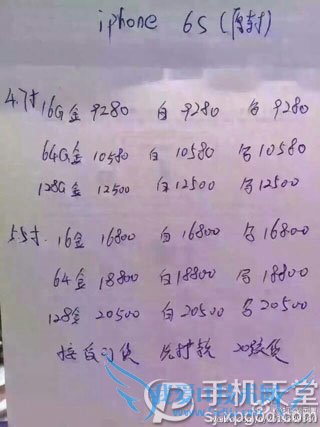 iphone 6S (原封)
4.7寸 16G金 9280 白 9280 9280
64G金 10580 白 10580 10580
128G金 12500 白 12500 12500
5.5寸. 16金 16800 白 16800 16800
64金 18800 白 18800 18800
128金 20500 白 20500 20500
接受订货 先打款
手机天堂
sjxpgod.com